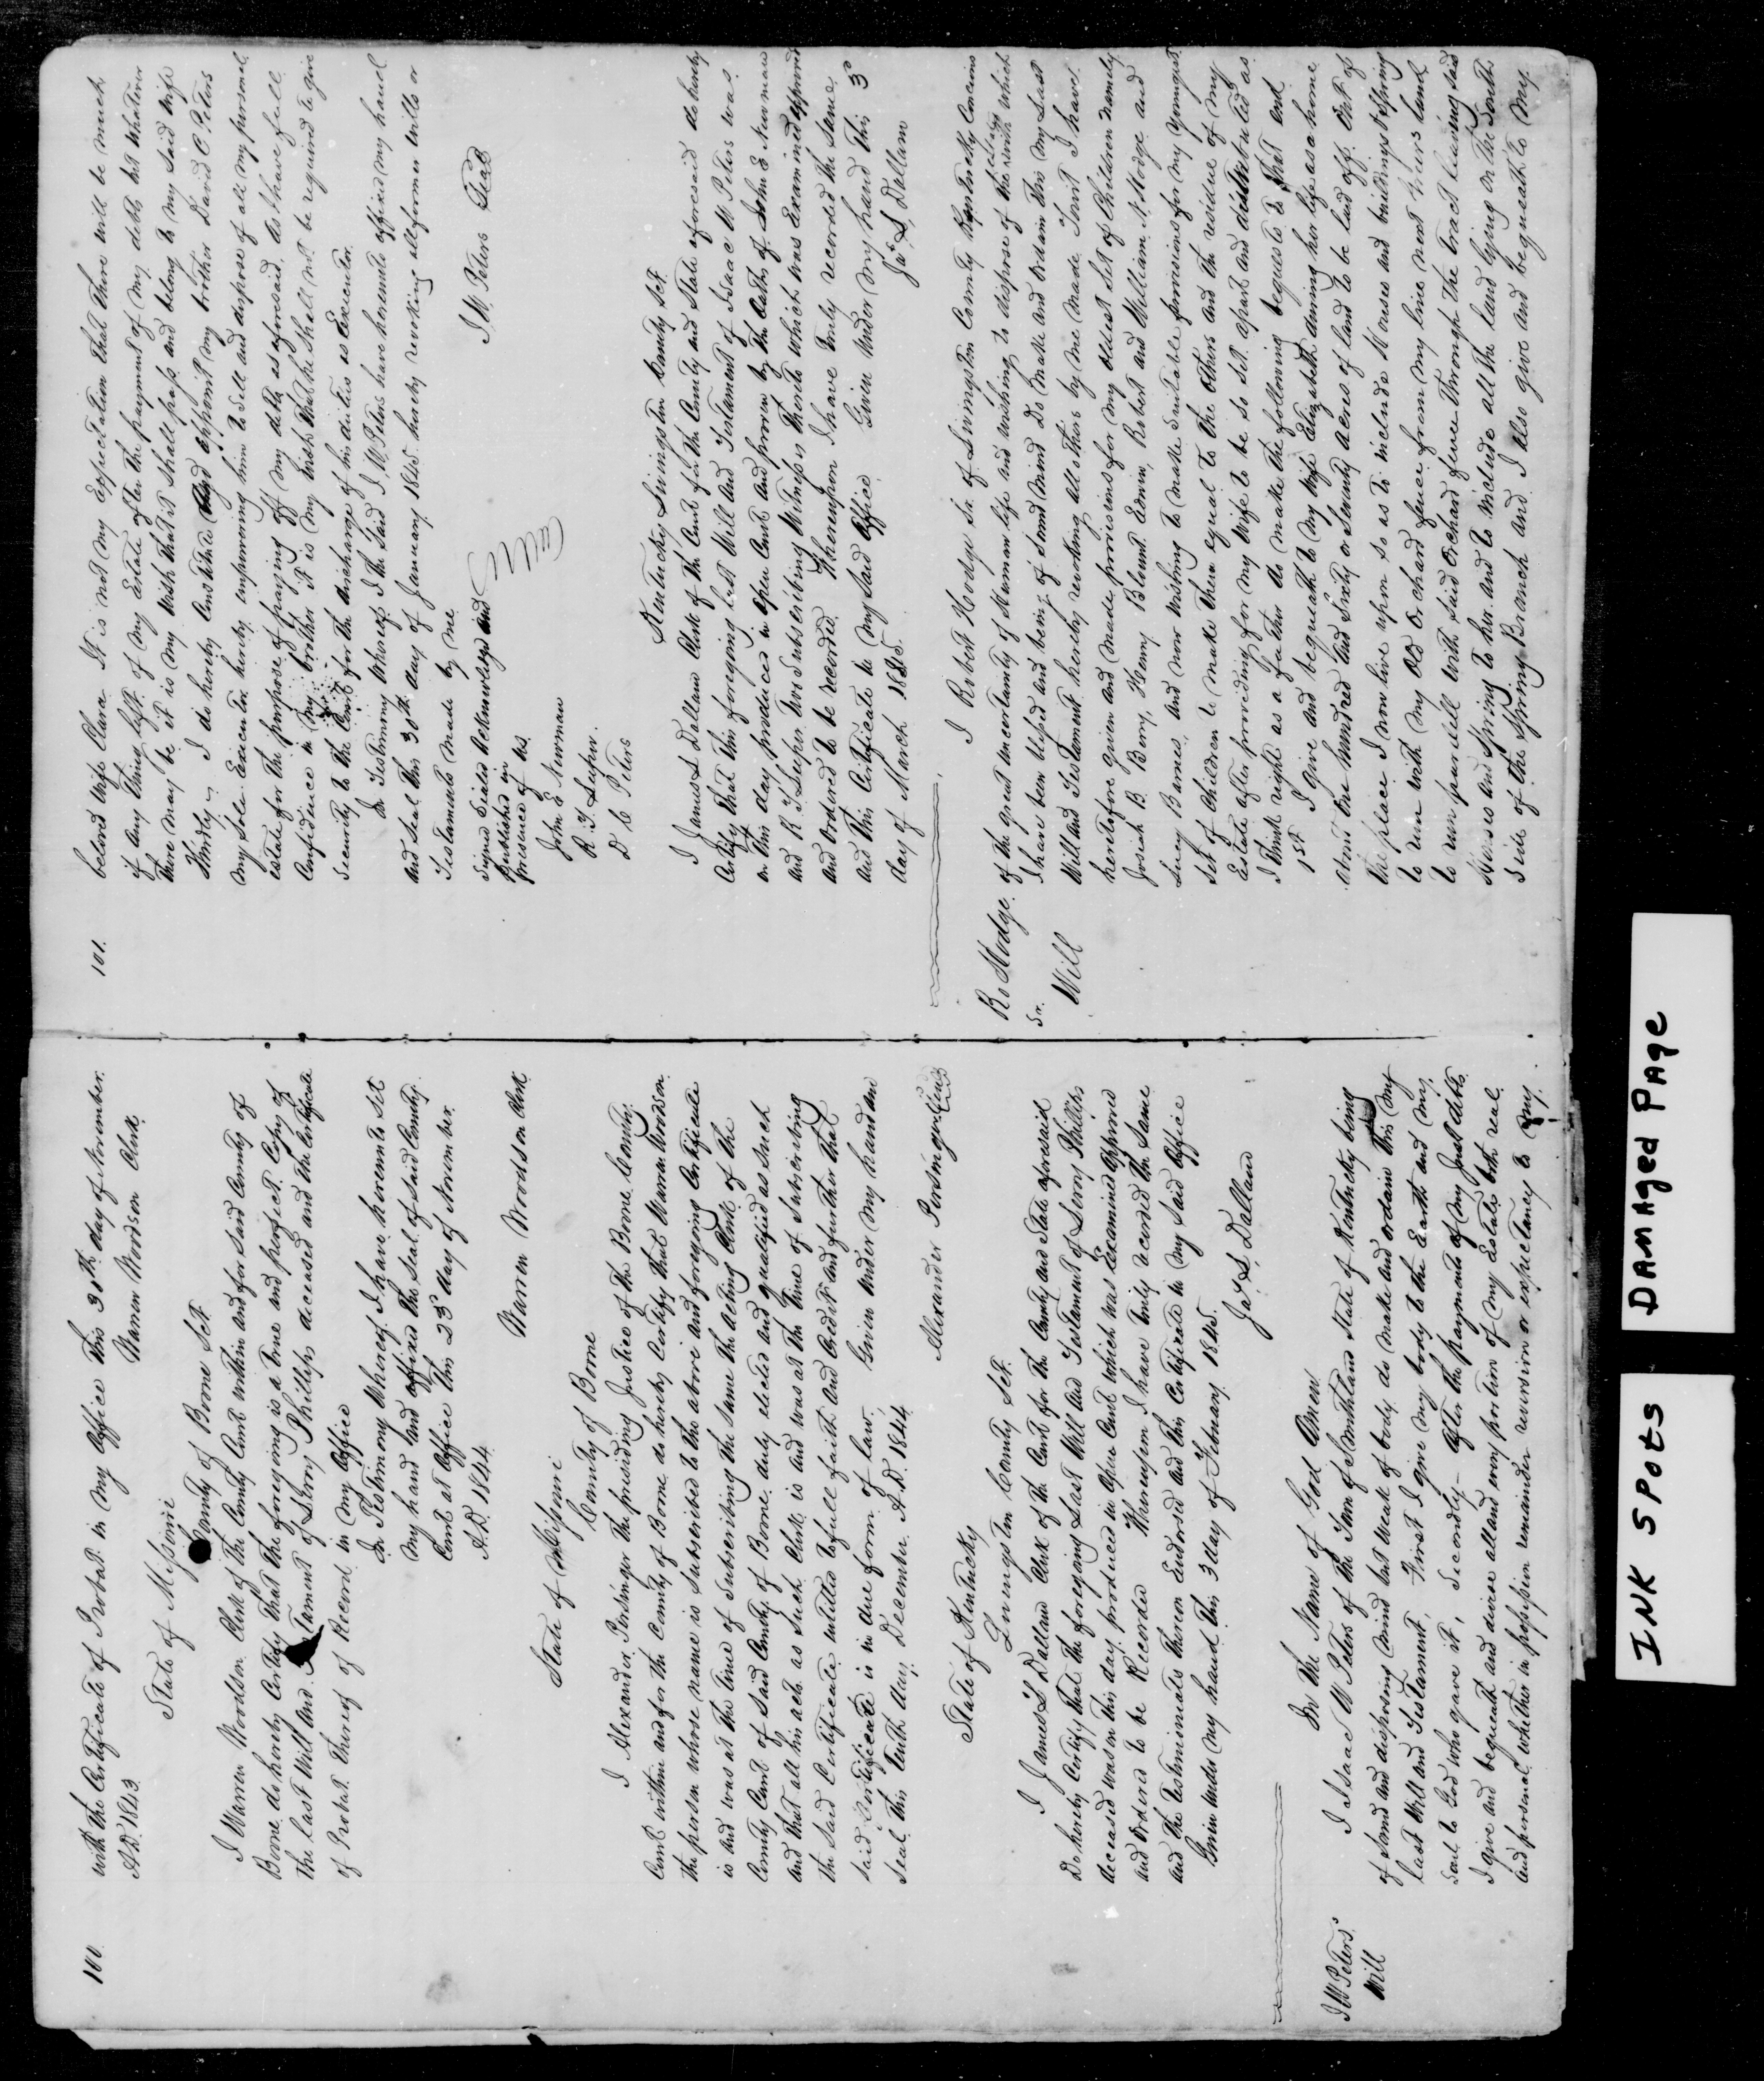 100.
with the Certificate of Probate in my office this 30th day of November.
A.D. 1843. Warren Woodson Clerk.
State of Missouri
County of Boone Sct.
I Warren Woodson Clerk of the County Court within and for said County of
Boone do hereby Certify that the foregoing is a true and perfect Copy of
the last Will and Testament of Leroy Phillips deceased and the Certificate
of Probate thereof of Record in my Office
In Testimony Whereof I have hereunto Set
My hand and affixed the Seal of Said County
Court at Office this 23d day of November.
A.D. 1844
Warren Woodson Clerk
State of Missouri
County of Boone
I Alexander Persinger the presiding Justice of the Boone County
Court within and for the County of Boone do hereby Certify that Warren Woodson
the person whose name is Subscribed to the above and foregoing Certificate
is and was at the time of Subscribing the Same the acting Clerk of the
County Court of Said County of Boone duly elected and qualified as Such
and that all his acts as Such Clerk is and was at the time of Subscribing
the said Certificate entitled to full faith And Credit and further that
Said Certificate is in due form of law. Given under my hand and
Seal this tenth day December A.D. 1844
Alexander Persinger Seal
State of Kentucky
Livingston County Sct.
I James L Dallam Clerk of the Court for the County and State aforesaid
Do hereby Certify that the foregoing Last Will and Testament of Leroy Phillips
deceased was on this day produced in Open Court which was Examined Approved
and Ordered to be Recorded Whereupon I have truly recorded the Same
and the testimonials thereon Endorsed and this Certificate in My Said Office
Given under my hand this 3 day of February 1845.
Jas L Dallam
I W Peters
Will
In the Name of God Amen
I Isaac W Peters of the Town of Smithland State of Kentucky being
of sound and disposing mind but weak of body, do make and ordain this my
last Will and Testament. First I give my body to the Earth and my
Soul to God who gave it, Secondly - After the payment of my Just debts
I give and bequeath and devise all and every portion of my Estate both real
and personal whether in possession remainder reversion or expectancy to my
101.
beloved wife Clara. It is not my expectation that there will be much
if any thing left of my Estate after the payment of my debts but whatever
there may be it is my wish that it shall pass and belong to my said wife
Thirdly - I do hereby Constitute and appoint my brother David C. Peters
my sole Executor hereby empowering him to sell and dispose of all my personal
estate for the purpose of paying off my debts as aforesaid. As I have full
Confidence in my brother it is my wish that he shall not be required to give
Security to the Court for the discharge of his duties as Executor.
In Testimony Whereof I the Said I. W. Peters have hereunto affixed my hand
and Seal this 30th day of January 1845 hereby revoking all former wills or
Testaments made by me
I. W. Peters Seal
Signed Sealed Acknowledged and
Published in
presence of us
John E Newman
R. T. Leeper.
D C Peters
Kentucky Livingston County Sct.
I James L Dallam Clerk of the Court for the County and State aforesaid do hereby
Certify that this foregoing last Will and Testament of Isaac W Peters was
on this day produced in open Court and proven by the Oaths of John E Newman
and R T Leeper two subscribing Witnesses thereto which was Examined approved
and Ordered to be recorded. Whereupon I have truly recorded the Same
and this Certificate in my said Office. Given under my hand this 3d
day of March 1845.
Jas L. Dallam
Ro Hodge
Sr.
Will
I Robert Hodge Sr. of Livingston County Kentucky
of the great uncertainty of Human life and wishing to dispose of the which
I have been blessed and being of Sound mind Do make and Ordain this my Last
Will and Testament hereby revoking all others by me made. That I have
heretofore given and made provisions for my oldest set of Children namely
Josiah B Berry, Henry Blount Edwin, Robert and William N Hodge and
Lucy Barnes, and now wishing to make suitable provisions for my youngest
set of Children to make them equal to the others and the residue of my
Estate after providing for my Wife to be so set apart and distributed as
I think right as a father do make the following bequests to that end
1st I give and bequeath to my Wife Elizabeth during her life as a home
about One hundred and Sixty or Seventy Acres of land to be laid off. Out of
the place I now live upon so as to include Houses and buildings & Spring
to run with my Old Orchard fence from my line next land
to run parallel with said Orchard fence through the tract leaving said
Houses and Spring to her and to include all the land lying on the South
Side of the Spring Branch and I also give and bequeath to my
INK SPOTS
DAMAGED PAGE